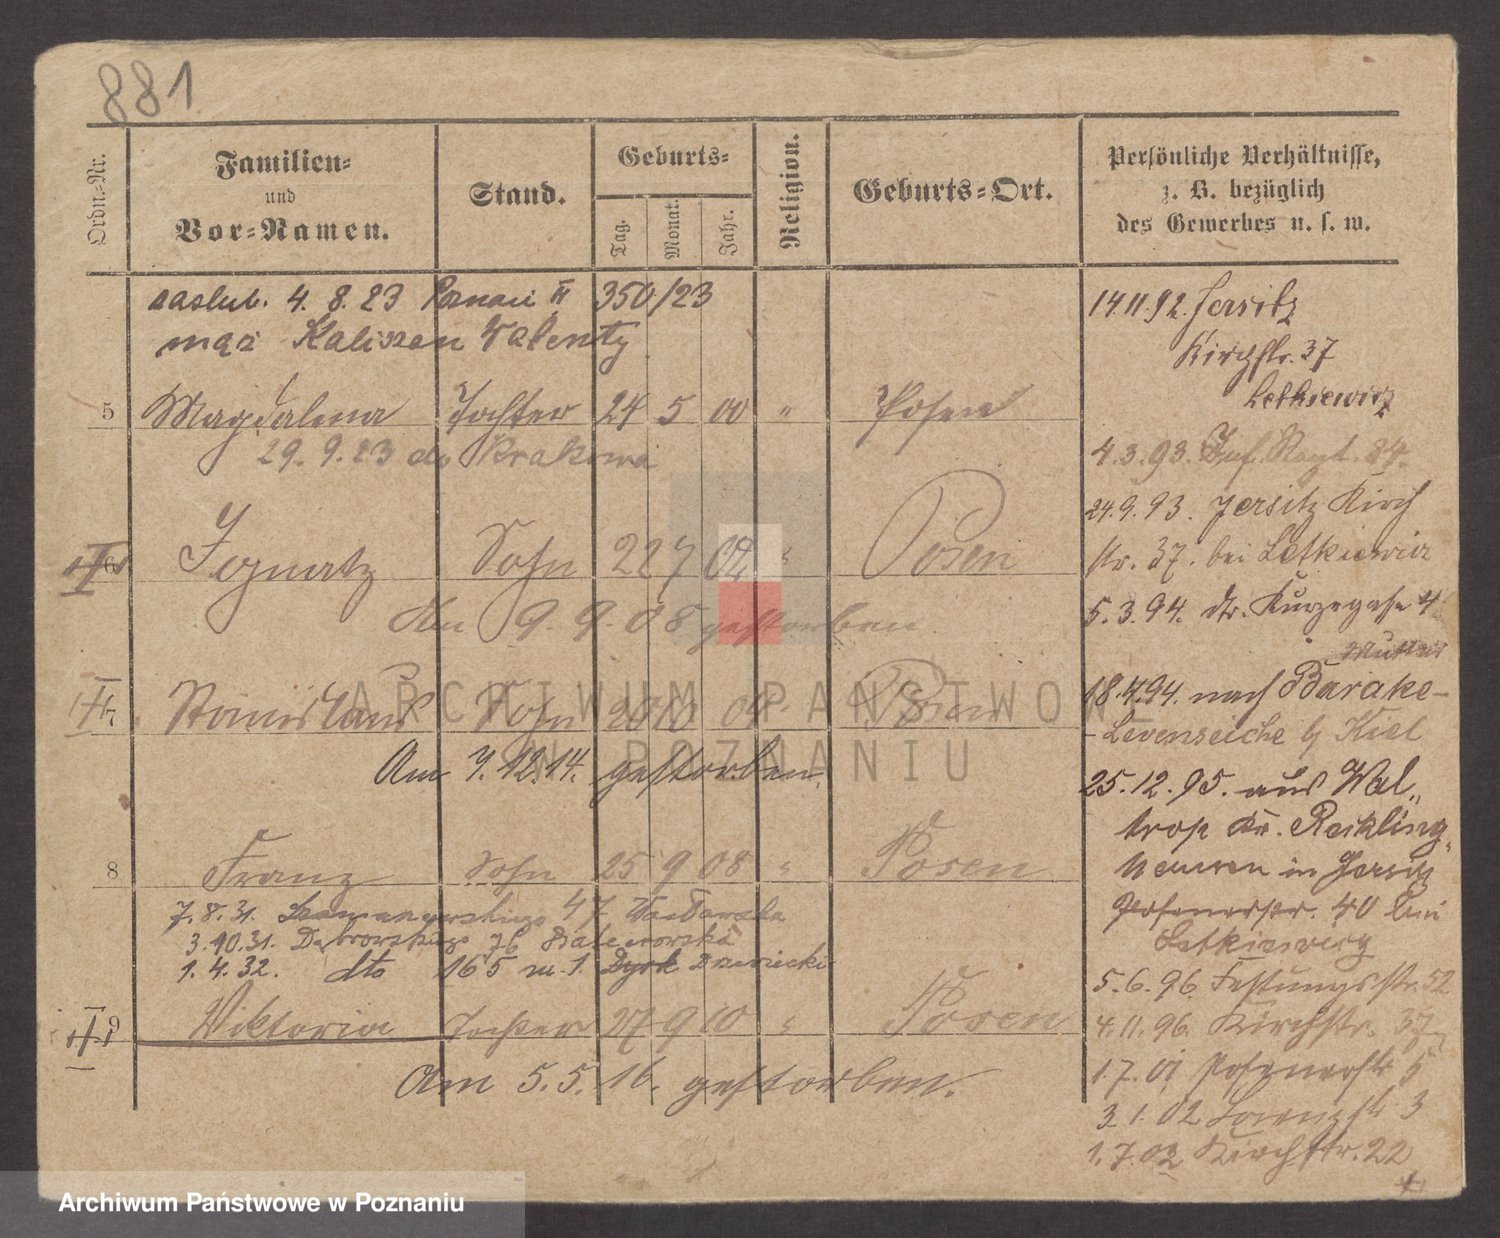 881
Ordn.-Nr.
Familien-
und
Vor-Namen.
Stand.
Geburts-
Tag.
Monat.
Jahr.
Religion.
Geburts-Ort.
Persönliche Verhältnisse,
z. B. bezüglich
des Gewerbes u. s. w.
zaslub. 4. 8. 23 Poznań III 350/23
mąż Kaliszan Walenty
5 Magdalena Tochter 24 5 00 " Posen
29. 9. 23 do Krakowa
6 Ignatz Sohn 22 7 02 " Posen
den 9. 9. 08 gestorben
7 Stanislaus Sohn 20 10 04 Posen
Am 7. 12. 14. gestorben.
8 Franz Sohn 25 9 08 " Posen
7. 8. 31. 47
3. 10. 31. Dąbrowskiego 76
1. 4. 32. dto 165 m. 1.
9 Viktoria Tochter 27 9 10 " Posen
Am 5. 5. 16. gestorben.
14.11.92. Jersitz
Kirchstr. 37
Letkiewicz
4. 3. 93. Inf. Regt. 84.
24. 9. 93. Jersitz Kirch
str. 37. bei Letkiewicz
5. 3. 94. Kurzegasse 4
Mutter
18.4.94. nach Barake-
-Levenseiche b/ Kiel
25. 12. 95. aus Wal„
trop Kr. Reckling„
hausen in Jersitz
Posenerstr. 40 bei
Letkiewicz
5. 6. 96. Festungsstr. 52
4. 11. 96. Kirchstr. 37
1. 7. 01 Posenerstr 5
3 1. 02 Lorenzstr 3
1. 7. 02 Kirchstr. 22
ARCHIWUM PAŃSTWOWE
W POZNANIU
Archiwum Państwowe w Poznaniu